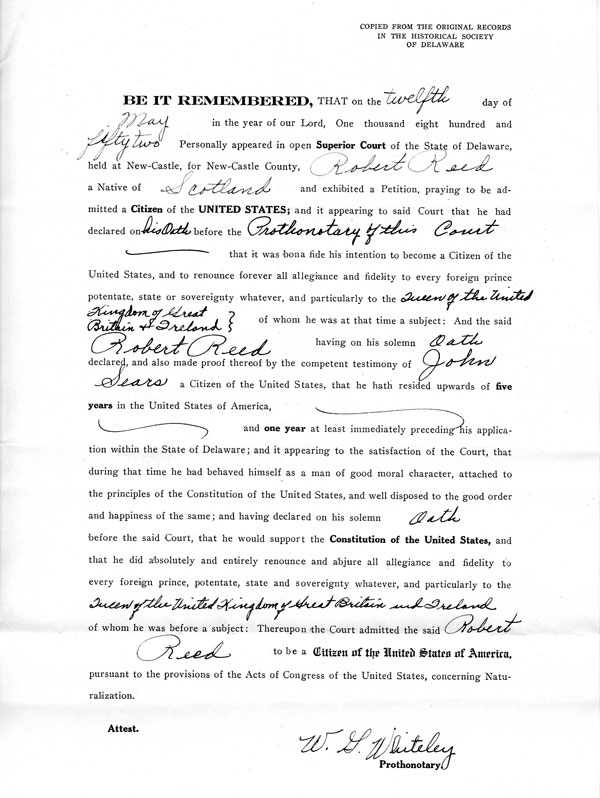 COPIED FROM THE ORIGINAL RECORDS
IN THE HISTORICAL SOCIETY
OF DELAWARE
BE IT REMEMBERED, THAT on the twelfth day of
May in the year of our Lord, One thousand eight hundred and
fifty two Personally appeared in open Superior Court of the State of Delaware,
held at New-Castle, for New-Castle County, Robert Reed
a Native of Scotland and exhibited a Petition, praying to be ad-
mitted a Citizen of the UNITED STATES; and it appearing to said Court that he had
declared on his Oath before the Prothonotary of this Court
that it was bona fide his intention to become a Citizen of the
United States, and to renounce forever all allegiance and fidelity to every foreign prince
potentate, state or sovereignty whatever, and particularly to the Queen of the United
Kingdom of Great
Britain & Ireland } of whom he was at that time a subject: And the said
Robert Reed having on his solemn Oath
declared, and also made proof thereof by the competent testimony of John
Sears a Citizen of the United States, that he hath resided upwards of five
years in the United States of America,
and one year at least immediately preceding his applica-
tion within the State of Delaware; and it appearing to the satisfaction of the Court, that
during that time he had behaved himself as a man of good moral character, attached to
the principles of the Constitution of the United States, and well disposed to the good order
and happiness of the same; and having declared on his solemn Oath
before the said Court, that he would support the Constitution of the United States, and
that he did absolutely and entirely renounce and abjure all allegiance and fidelity to
every foreign prince, potentate, state and sovereignty whatever, and particularly to the
Queen of the United Kingdom of Great Britain and Ireland
of whom he was before a subject: Thereupon the Court admitted the said Robert
Reed to be a Citizen of the United States of America,
pursuant to the provisions of the Acts of Congress of the United States, concerning Natu-
ralization.
Attest.
W. G. Whiteley
Prothonotary